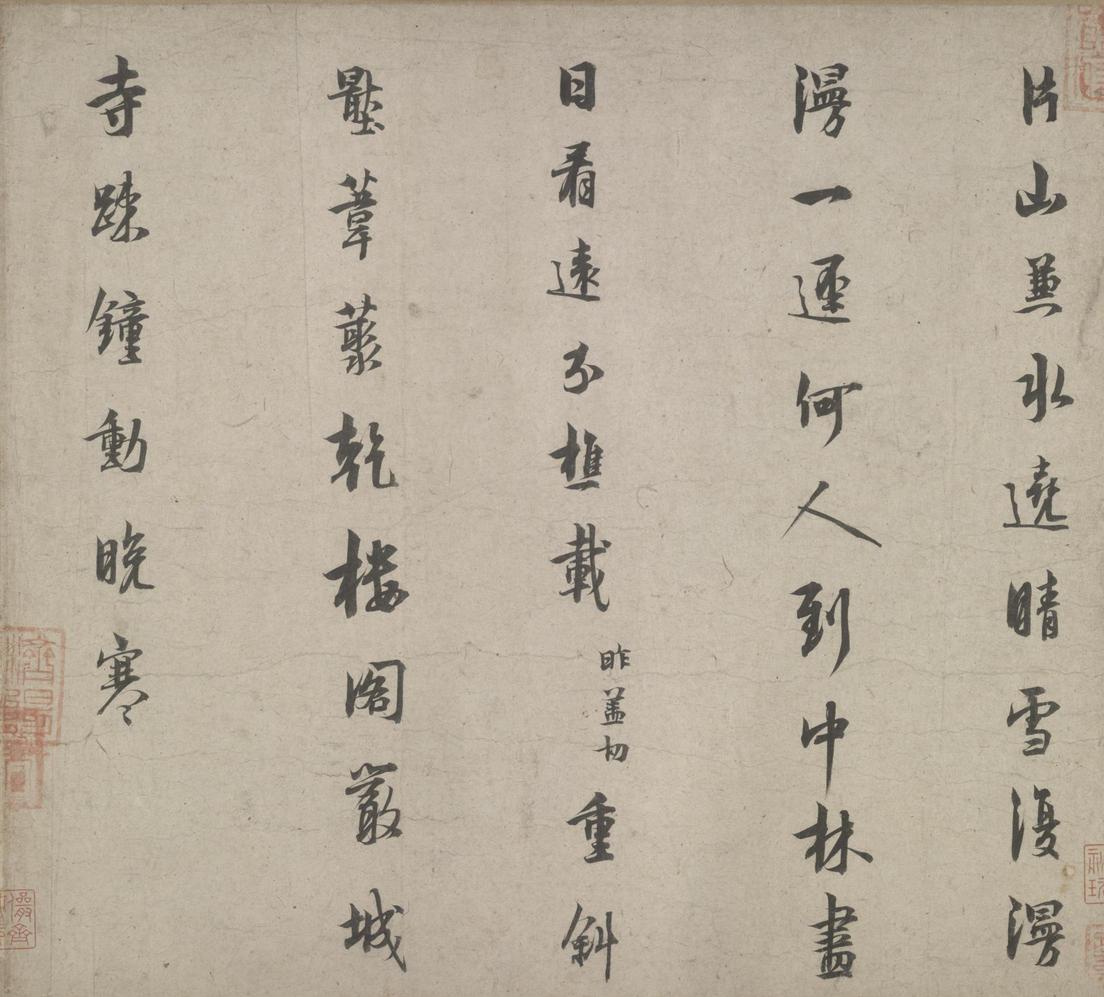 片山兼水遶晴雪復漫
漫一逕何人到中林盡
日看遠分樵載昨盖切重斜
壓葦藂乾樓閣嚴城
寺踈鐘動晚寒